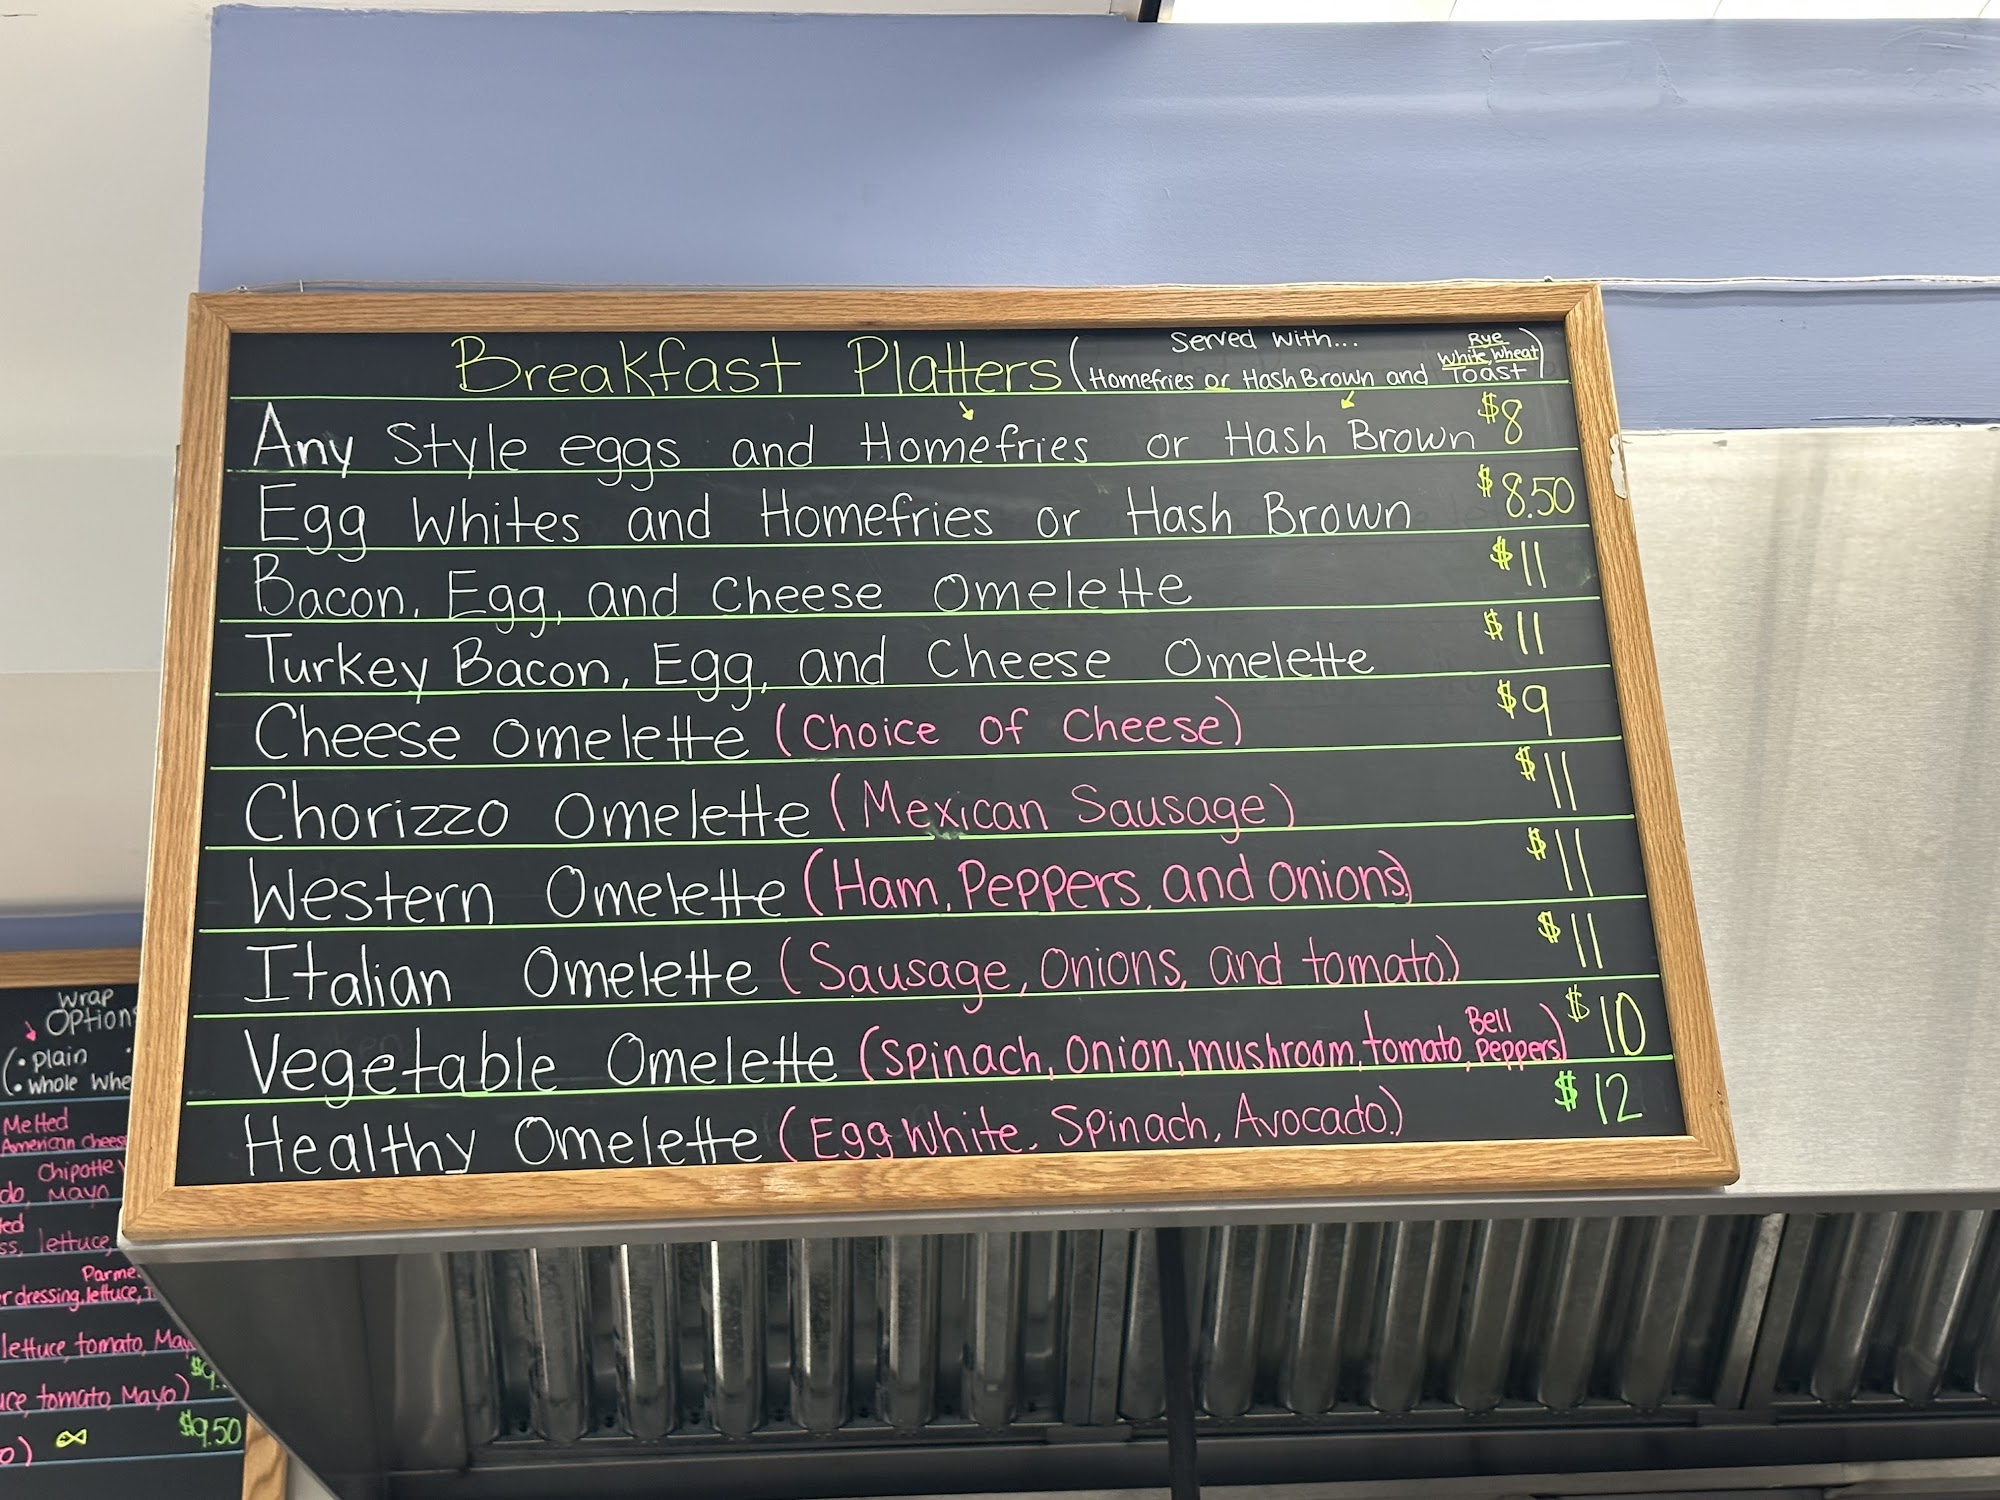 Breakfast Platters (Served with... Homefries or Hash Brown and Rye White, Wheat Toast)
Any Style eggs and Homefries or Hash Brown $8
Egg Whites and Homefries or Hash Brown $8.50
Bacon, Egg, and Cheese Omelette $11
Turkey Bacon, Egg, and Cheese Omelette $11
Cheese Omelette (Choice of Cheese) $9
Chorizzo Omelette (Mexican Sausage) $11
Western Omelette (Ham, Peppers, and Onions) $11
Italian Omelette (Sausage, Onions, and tomato.) $11
Vegetable Omelette (Spinach, Onion, mushroom, tomato, Bell Peppers) $10
Healthy Omelette (Egg White, Spinach, Avocado.) $12
Wrap
Options
(• Plain
(• Whole Whe
Melted
American Cheese
Chipotle
do, Mayo
ss, lettuce,
Parme
r dressing, lettuce,
lettuce, tomato, May
uce, tomato, Mayo)
o) $9.50